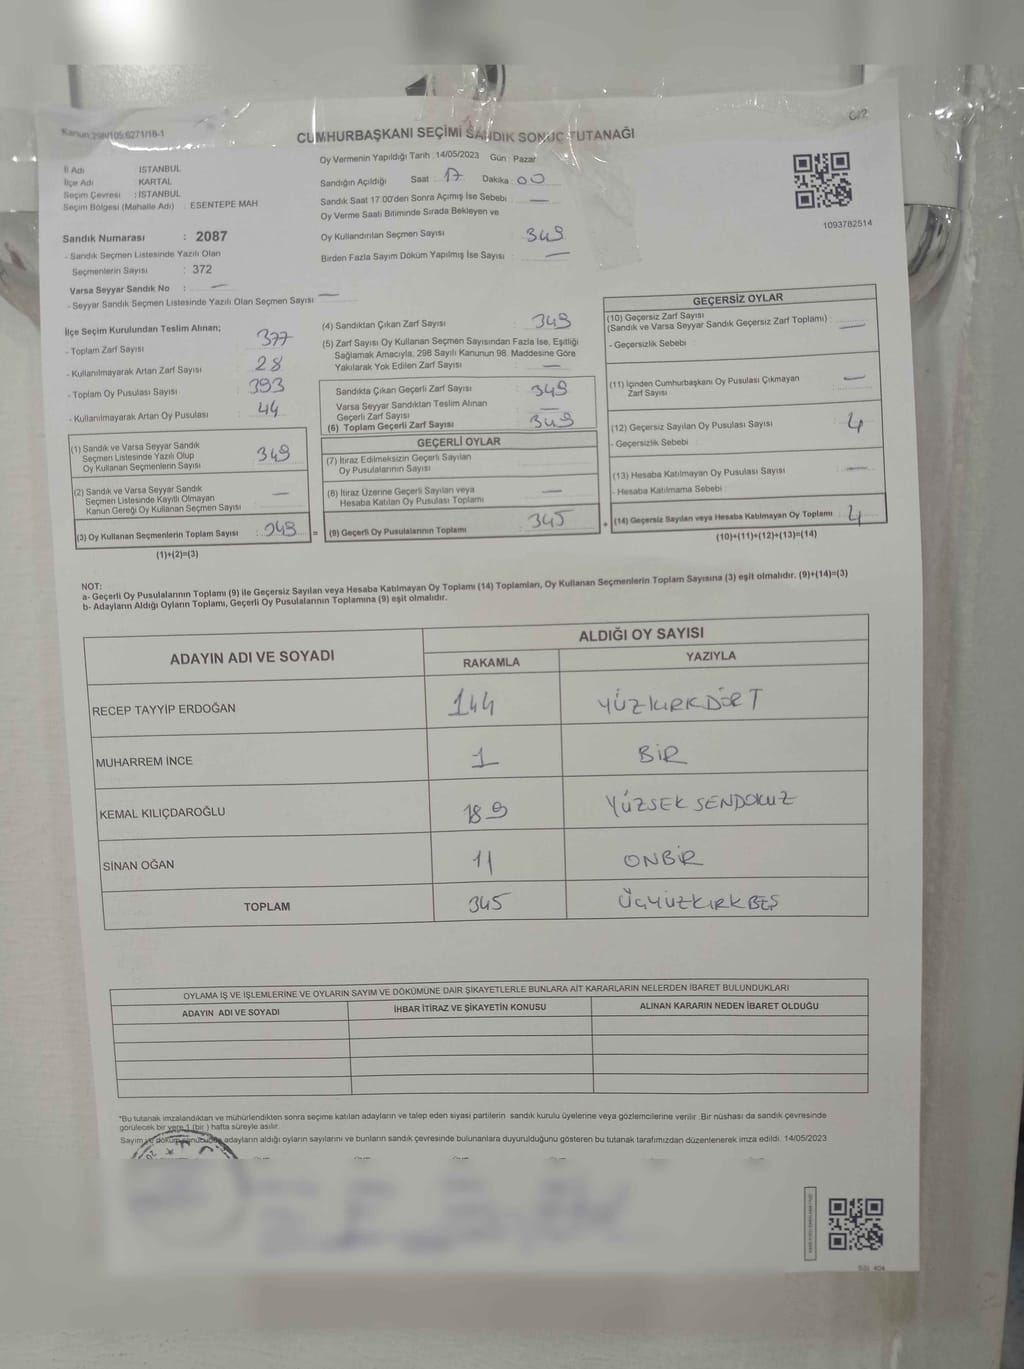 Kanun:298/105:6271/18-1
CUMHURBAŞKANI SEÇİMİ SANDIK SONUÇ TUTANAĞI
İl Adı : İSTANBUL
İlçe Adı : KARTAL
Seçim Çevresi : İSTANBUL
Seçim Bölgesi (Mahalle Adı) : ESENTEPE MAH
Sandık Numarası : 2087
- Sandık Seçmen Listesinde Yazılı Olan
Seçmenlerin Sayısı : 372
Varsa Seyyar Sandık No : —
- Seyyar Sandık Seçmen Listesinde Yazılı Olan Seçmen Sayısı : —
Oy Vermenin Yapıldığı Tarih : 14/05/2023 Gün : Pazar
Sandığın Açıldığı Saat : 17 Dakika : 00
Sandık Saat 17.00'den Sonra Açımış İse Sebebi : —
Oy Verme Saati Bitiminde Sırada Bekleyen ve
Oy Kullandırılan Seçmen Sayısı : 349
Birden Fazla Sayım Döküm Yapılmış İse Sayısı : —
1093782514
İlçe Seçim Kurulundan Teslim Alınan;
- Toplam Zarf Sayısı : 377
- Kullanılmayarak Artan Zarf Sayısı : 28
- Toplam Oy Pusulası Sayısı : 393
- Kullanılmayarak Artan Oy Pusulası : 44
(1) Sandık ve Varsa Seyyar Sandık
Seçmen Listesinde Yazılı Olup
Oy Kullanan Seçmenlerin Sayısı : 349
(2) Sandık ve Varsa Seyyar Sandık
Seçmen Listesinde Kayıtlı Olmayan
Kanun Gereği Oy Kullanan Seçmen Sayısı : —
(3) Oy Kullanan Seçmenlerin Toplam Sayısı : 349
(1)+(2)=(3)
(4) Sandıktan Çıkan Zarf Sayısı : 349
(5) Zarf Sayısı Oy Kullanan Seçmen Sayısından Fazla İse, Eşitliği
Sağlamak Amacıyla, 298 Sayılı Kanunun 98. Maddesine Göre
Yakılarak Yok Edilen Zarf Sayısı : —
Sandıkta Çıkan Geçerli Zarf Sayısı : 349
Varsa Seyyar Sandıktan Teslim Alınan
Geçerli Zarf Sayısı : —
(6) Toplam Geçerli Zarf Sayısı : 349
GEÇERLİ OYLAR
(7) İtiraz Edilmeksizin Geçerli Sayılan
Oy Pusulalarının Sayısı :
(8) İtiraz Üzerine Geçerli Sayılan veya
Hesaba Katılan Oy Pusulası Toplamı : —
= (9) Geçerli Oy Pusulalarının Toplamı : 345
GEÇERSİZ OYLAR
(10) Geçersiz Zarf Sayısı
(Sandık ve Varsa Seyyar Sandık Geçersiz Zarf Toplamı) : —
- Geçersizlik Sebebi :
(11) İçinden Cumhurbaşkanı Oy Pusulası Çıkmayan
Zarf Sayısı : —
(12) Geçersiz Sayılan Oy Pusulası Sayısı : 4
- Geçersizlik Sebebi :
(13) Hesaba Katılmayan Oy Pusulası Sayısı : —
- Hesaba Katılmama Sebebi :
+ (14) Geçersiz Sayılan veya Hesaba Katılmayan Oy Toplamı : 4
(10)+(11)+(12)+(13)=(14)
NOT:
a- Geçerli Oy Pusulalarının Toplamı (9) ile Geçersiz Sayılan veya Hesaba Katılmayan Oy Toplamı (14) Toplamları, Oy Kullanan Seçmenlerin Toplam Sayısına (3) eşit olmalıdır. (9)+(14)=(3)
b- Adayların Aldığı Oyların Toplamı, Geçerli Oy Pusulalarının Toplamına (9) eşit olmalıdır.
ADAYIN ADI VE SOYADI
ALDIĞI OY SAYISI
RAKAMLA YAZIYLA
RECEP TAYYİP ERDOĞAN 144 YÜZKIRKDÖRT
MUHARREM İNCE 1 BİR
KEMAL KILIÇDAROĞLU 189 YÜZSEKSENDOKUZ
SİNAN OĞAN 11 ONBİR
TOPLAM 345 ÜÇYÜZKIRKBEŞ
OYLAMA İŞ VE İŞLEMLERİNE VE OYLARIN SAYIM VE DÖKÜMÜNE DAİR ŞİKAYETLERLE BUNLARA AİT KARARLARIN NELERDEN İBARET BULUNDUKLARI
ADAYIN ADI VE SOYADI İHBAR İTİRAZ VE ŞİKAYETİN KONUSU ALINAN KARARIN NEDEN İBARET OLDUĞU
*Bu tutanak imzalandıktan ve mühürlendikten sonra seçime katılan adayların ve talep eden siyasi partilerin sandık kurulu üyelerine veya gözlemcilerine verilir. Bir nüshası da sandık çevresinde
görülecek bir yere 1 (bir) hafta süreyle asılır.
Sayım ve döküm sonucunda adayların aldığı oyların sayılarını ve bunların sandık çevresinde bulunanlara duyurulduğunu gösteren bu tutanak tarafımızdan düzenlenerek imza edildi. 14/05/2023